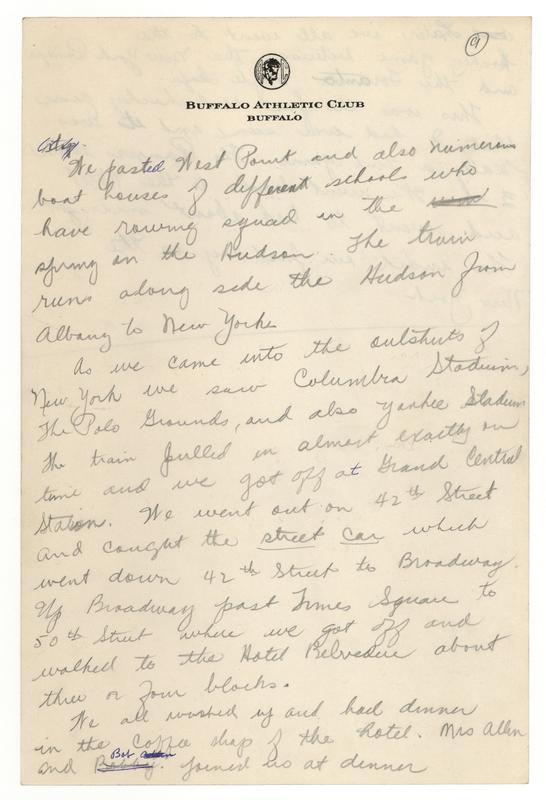 9
BUFFALO ATHLETIC CLUB
BUFFALO
We pasted West Point and also numerous
boat houses of different schools who
have rowing squad in the
spring on the Hudson. The train
runs along side the Hudson from
Albany to New York.
As we came into the outskirts of
New York we saw Columbia Stadium,
The Polo Grounds, and also Yankee Stadium
The train pulled in almost exactly on
time and we got off at Grand Central
Station. We went out on 42th Street
and caught the street car which
went down 42th Street to Broadway.
Up Broadway past Times Square to
50th Street where we got off and
walked to the Hotel Belvedere about
three or four blocks.
We all washed up and had dinner
in the coffee shop of the hotel. Mrs Allen
Bob
and Bobby. joined us at dinner